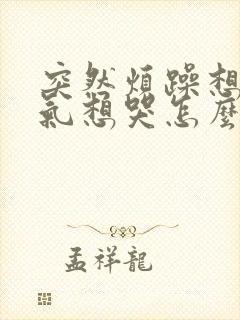 突然煩躁想
氣想哭怎麼
孟祥龍